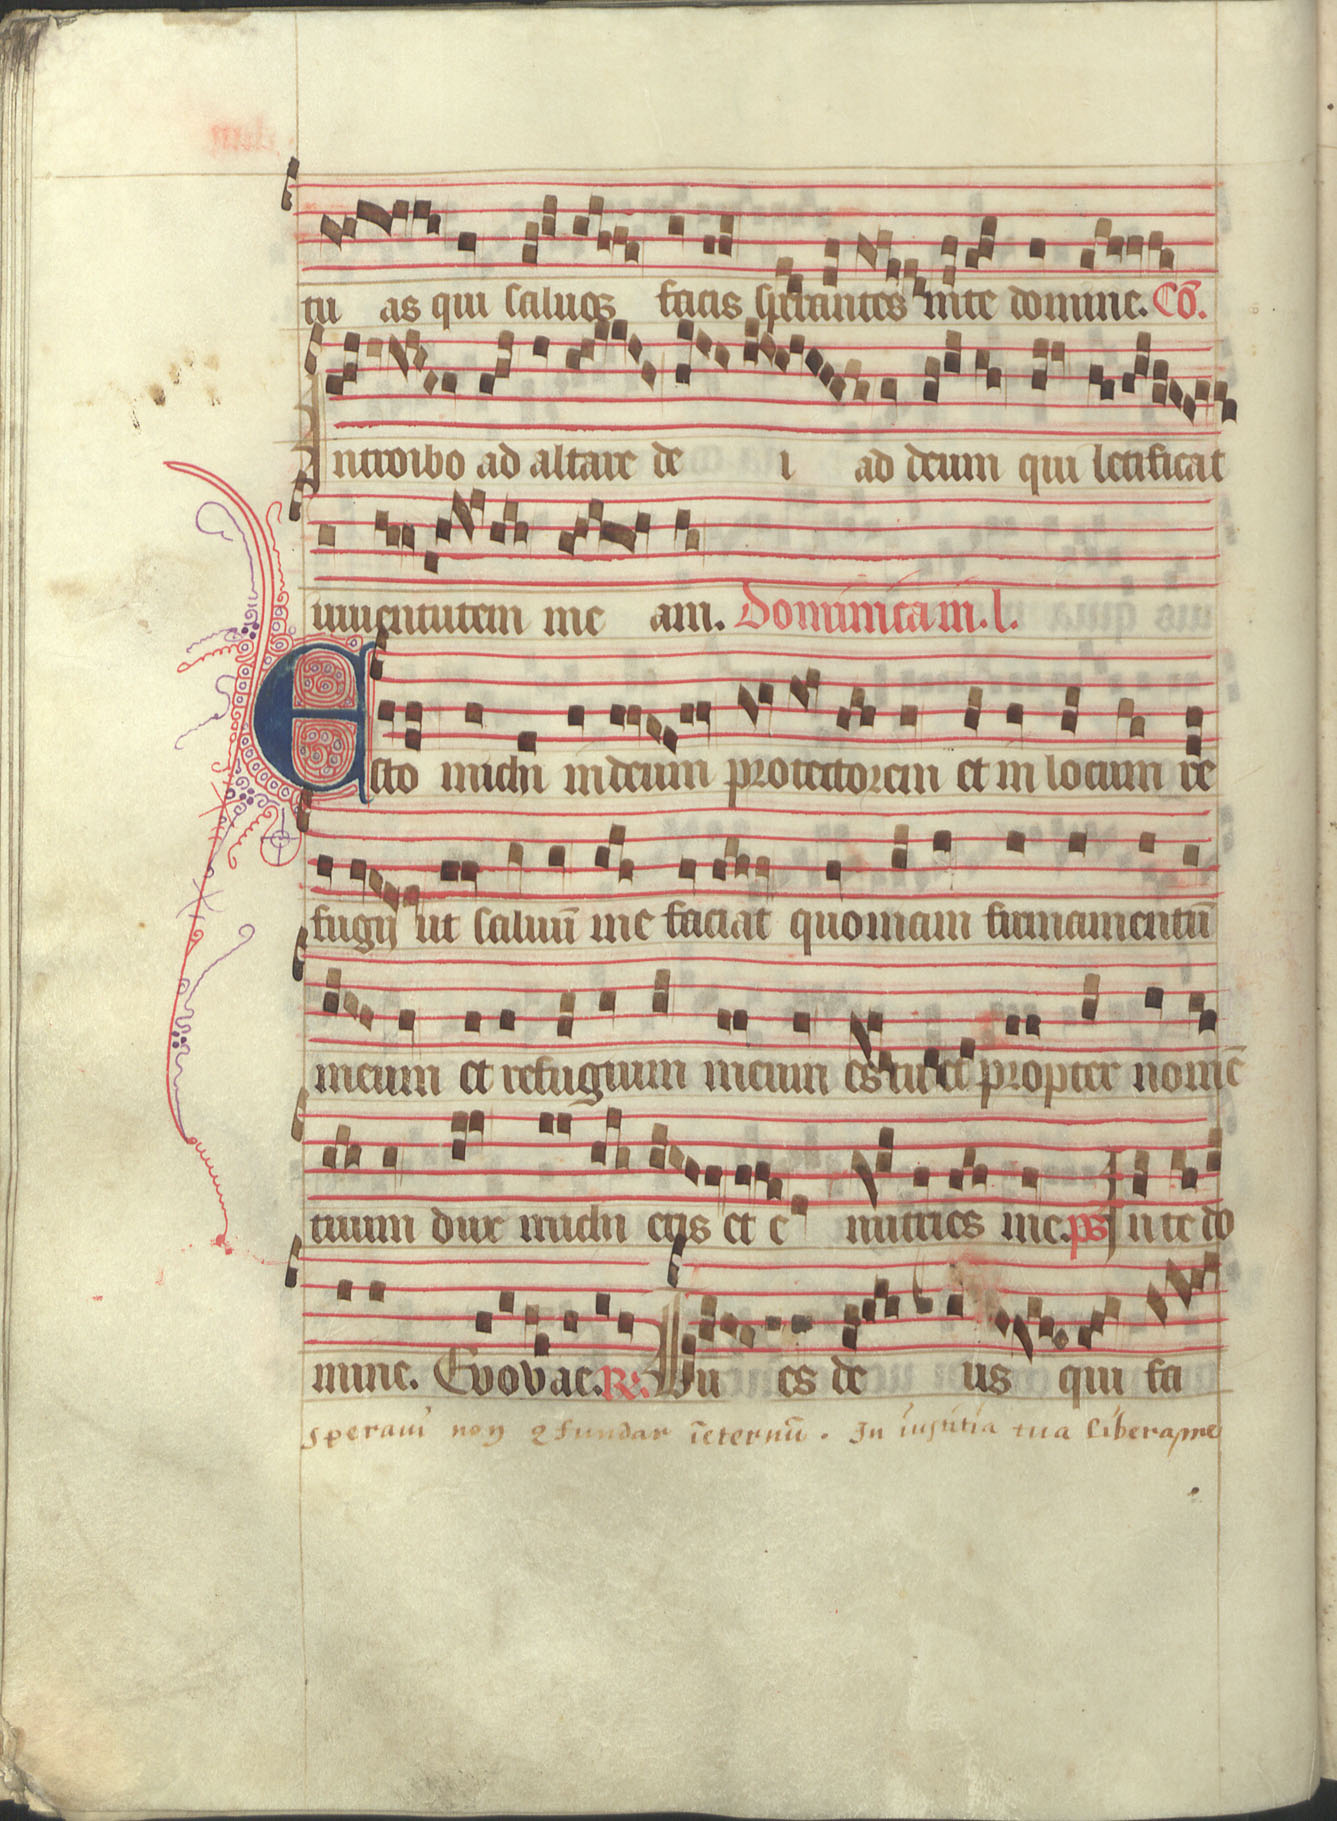 tu as qui saluos facis sperantes in te domine. Cō.
Introibo ad altare de i ad deum qui letificat
iuuentutem me am. Dominica in .l.
Esto michi in deum protectorem et in locum re
fugij ut saluū me facias quoniam firmamentū
meum et refugium meum es tu et propter nomē
tuum dux michi eris et e nutries me. ps In te do
mine. Evovae. R. Tu es de us qui fa
speraui non ꝯfundar īeternū. In iustitia tua libera me